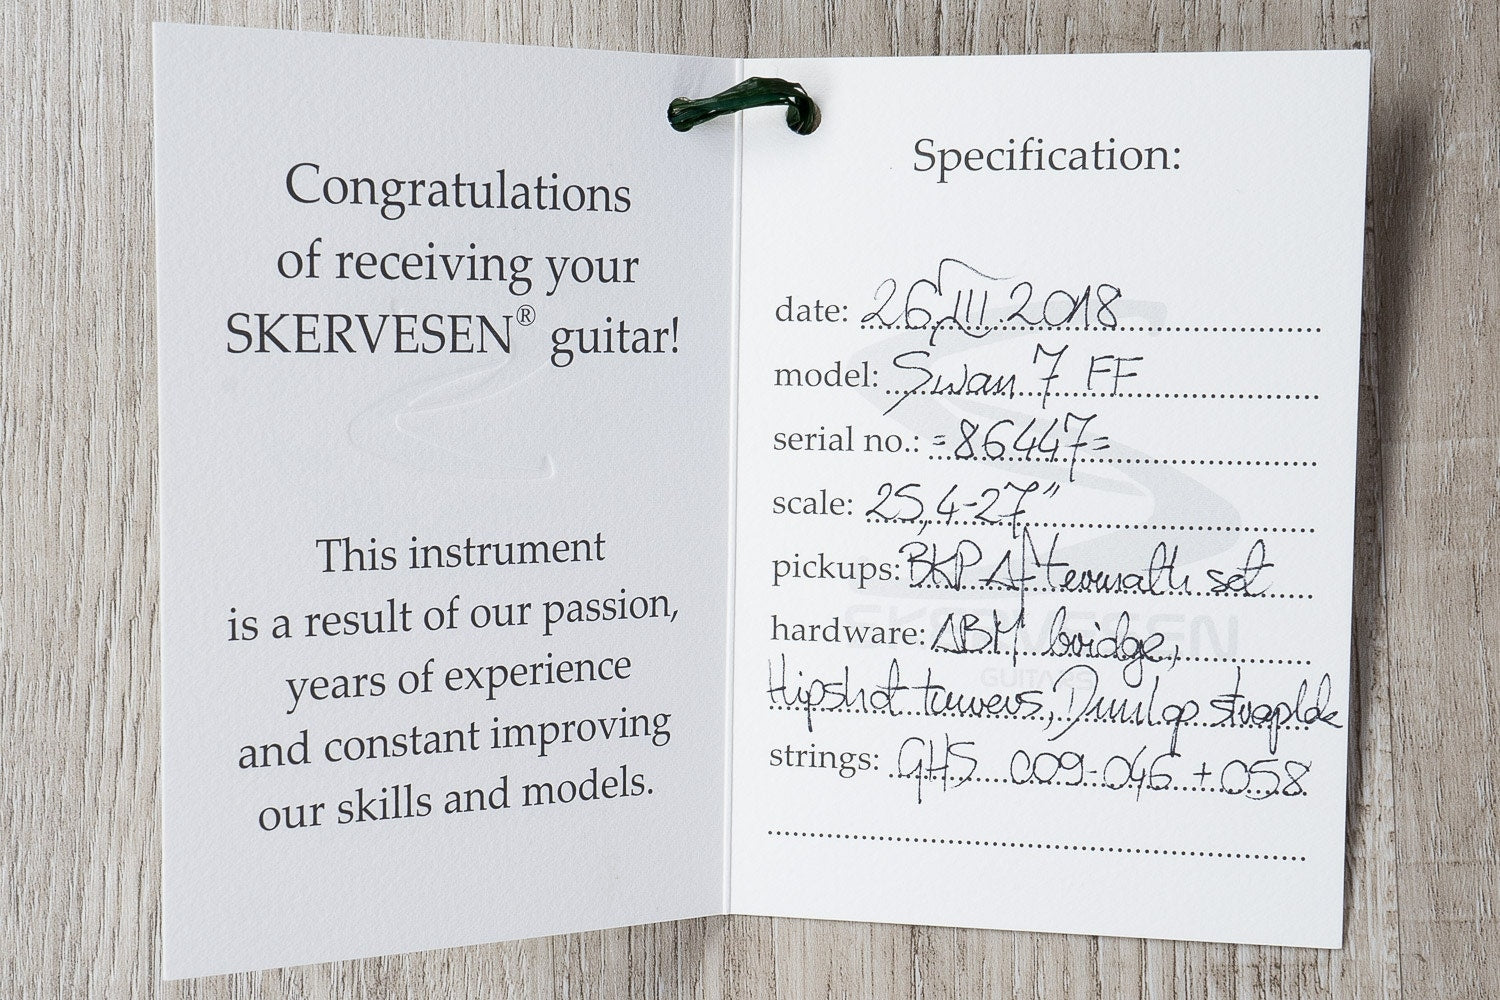 Congratulations
of receiving your
SKERVESEN® guitar!
This instrument
is a result of our passion,
years of experience
and constant improving
our skills and models.
Specification:
date: 26.III.2018
model: Swan 7 FF
serial no.: =86447=
scale: 25,4-27"
pickups: BKP Aftermath set
hardware: ABM bridge,
Hipshot tuners, Dunlop straplok
strings: GHS 009-046 +058
SKERVESEN
GUITARS